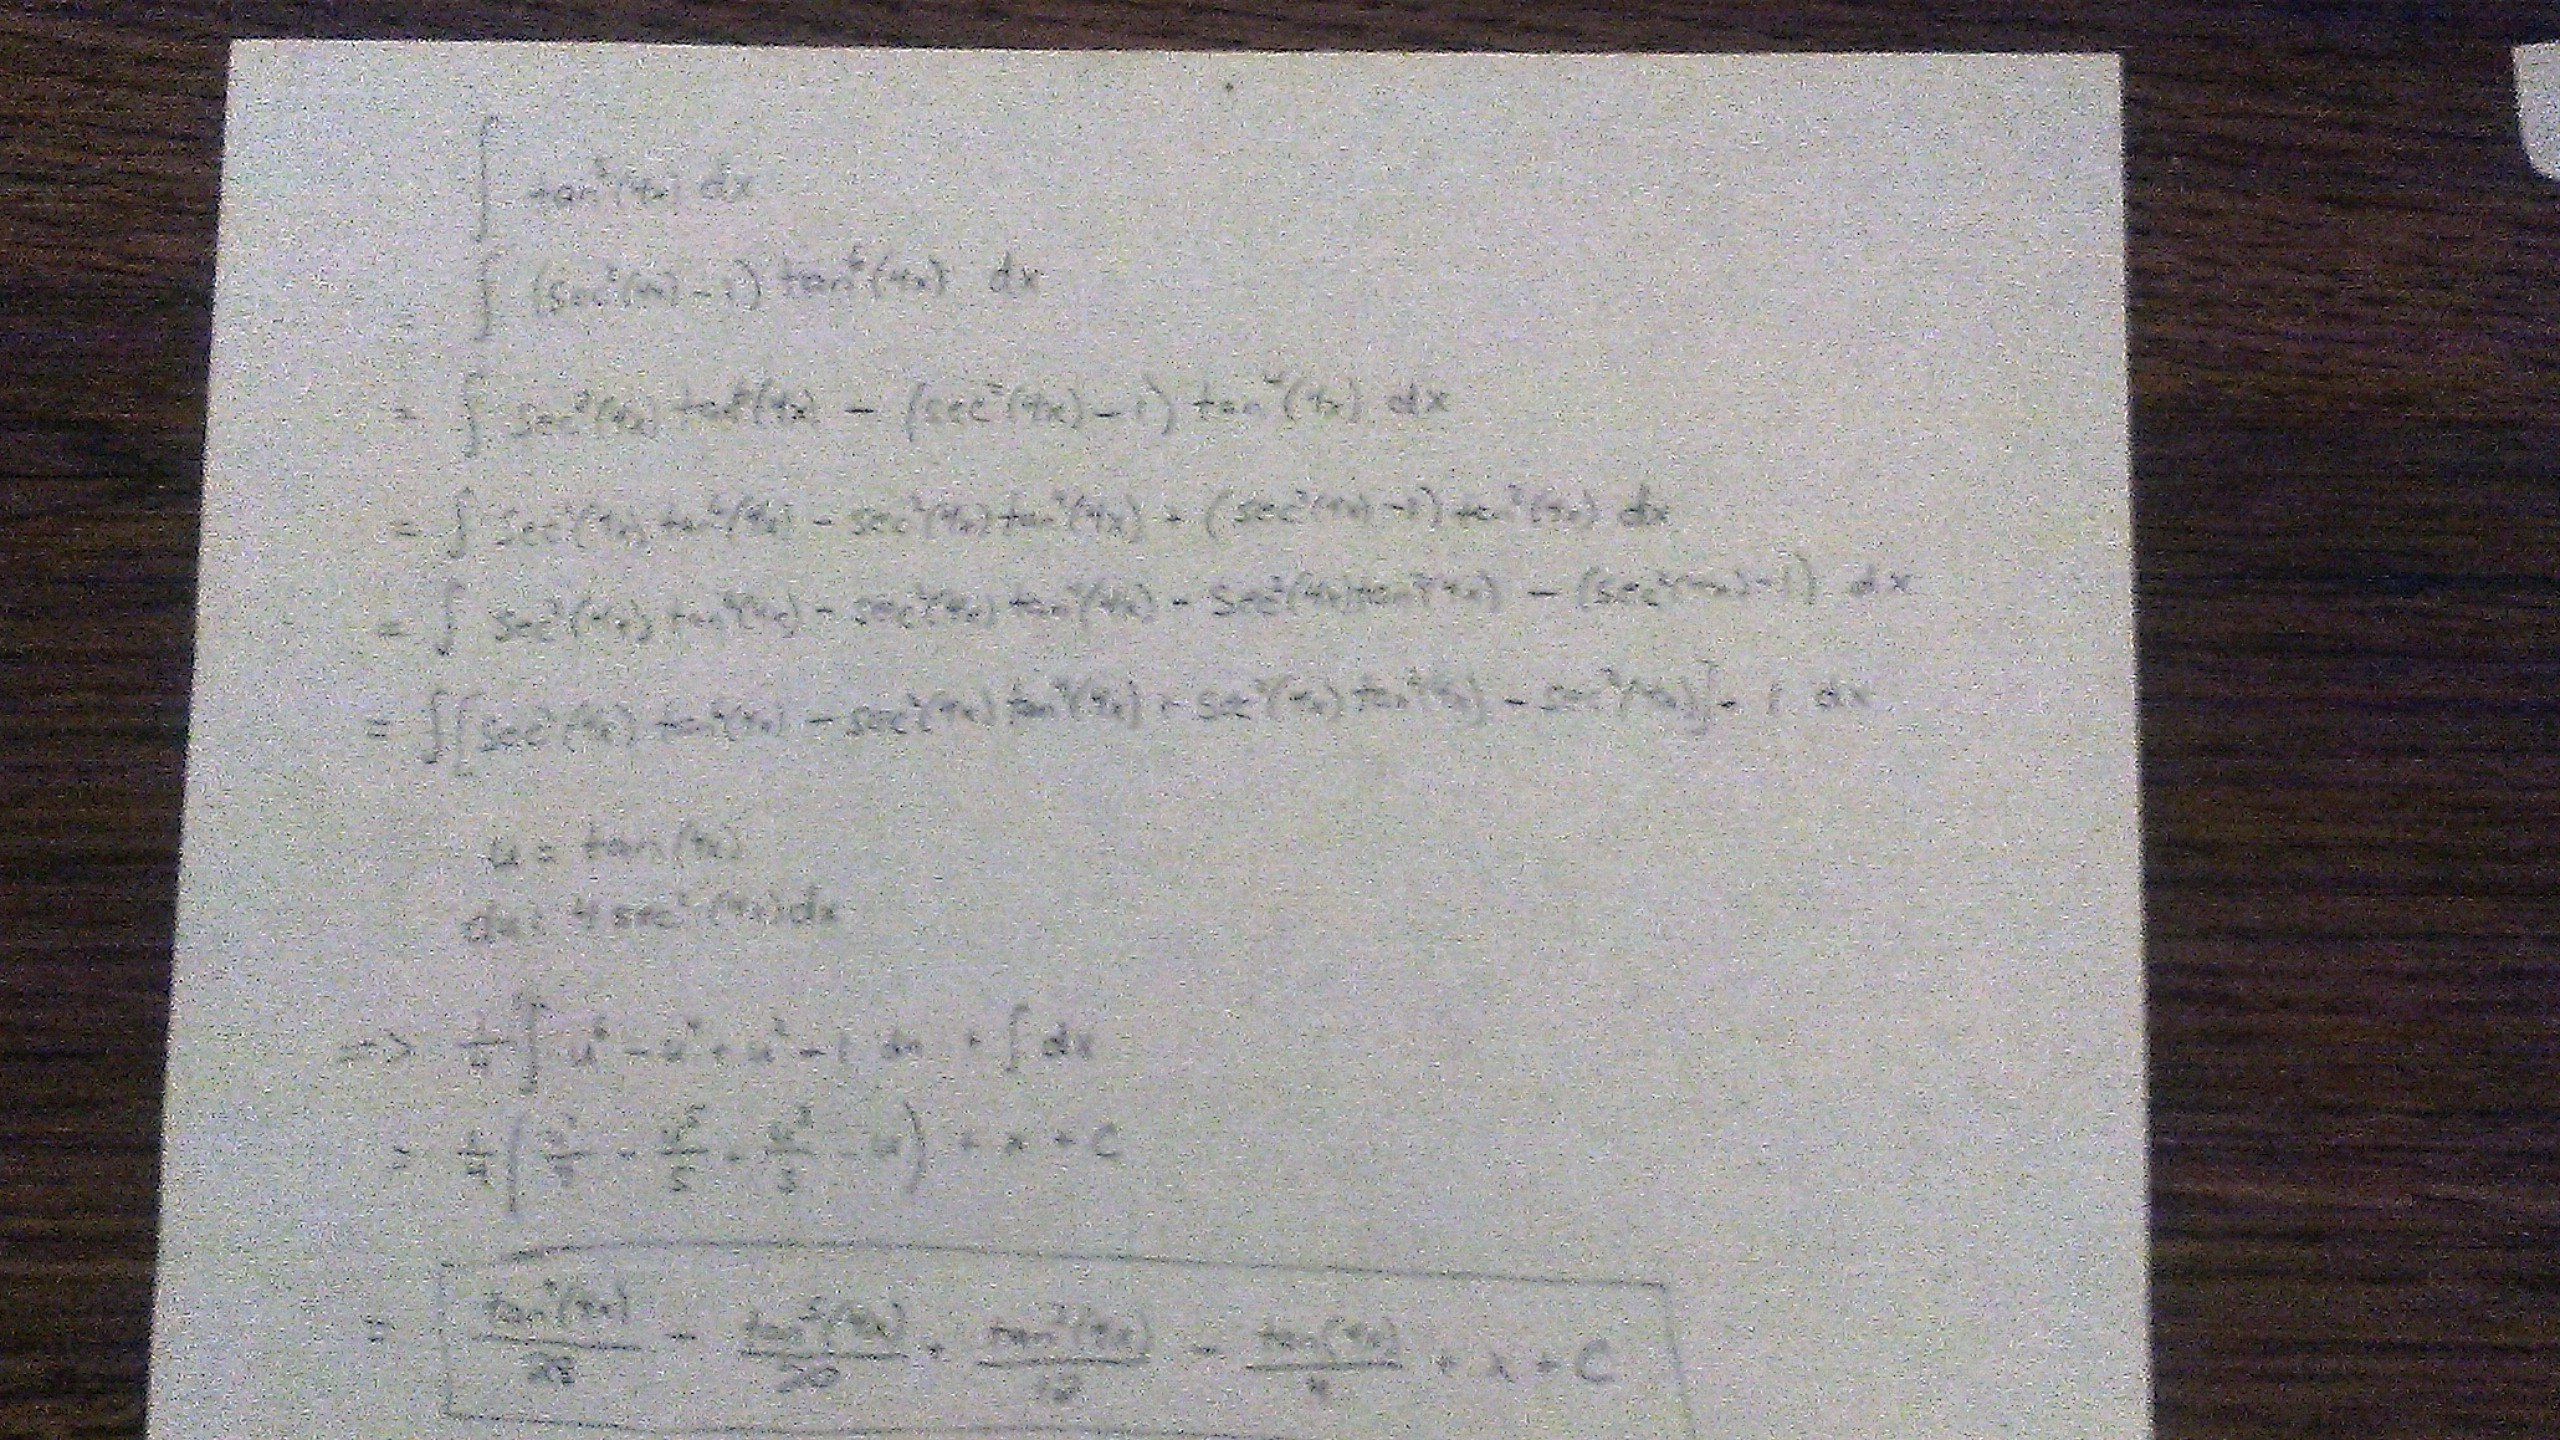 ∫ tan⁸(4x) dx
= ∫ (sec²(4x) - 1) tan⁶(4x) dx
= ∫ sec²(4x) tan⁶(4x) - (sec²(4x) - 1) tan⁴(4x) dx
= ∫ sec²(4x) tan⁶(4x) - sec²(4x) tan⁴(4x) + (sec²(4x) - 1) tan²(4x) dx
= ∫ sec²(4x) tan⁶(4x) - sec²(4x) tan⁴(4x) + sec²(4x) tan²(4x) - (sec²(4x) - 1) dx
= ∫ [sec²(4x) tan⁶(4x) - sec²(4x) tan⁴(4x) + sec²(4x) tan²(4x) - sec²(4x)] + 1 dx
u = tan(4x)
du = 4 sec²(4x) dx
=> 1/4 ∫ u⁶ - u⁴ + u² - 1 du + ∫ dx
= 1/4 (u⁷/7 - u⁵/5 + u³/3 - u) + x + C
= tan⁷(4x)/28 - tan⁵(4x)/20 + tan³(4x)/12 - tan(4x)/4 + x + C